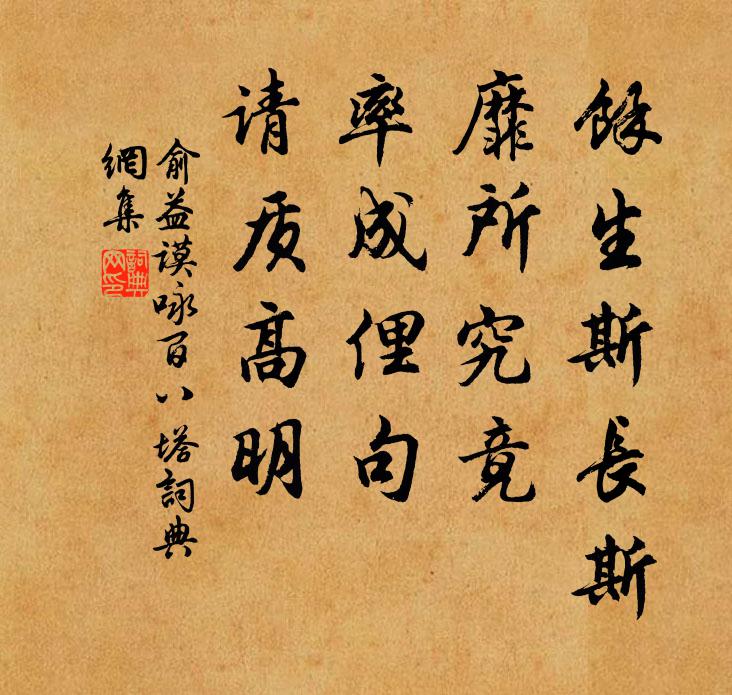 餘生斯長斯
靡所究竟
率成俚句
请质高明
俞益谟咏百八塔詞典
網集
詞典網印